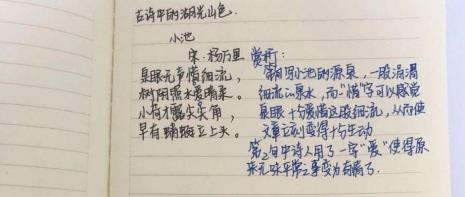 古诗中的湖光山色.
小池
宋·杨万里
泉眼无声惜细流，
树阴照水爱晴柔。
小荷才露尖尖角，
早有蜻蜓立上头。
赏析:
第1句写小池的源泉，一股涓涓
细流的泉水，而"惜"字可以感觉
泉眼十分爱惜这股细流，从而使
文章立刻变得十分生动
第2句中诗人用了一字"爱"使得原
来无味平常之事变为有情了.